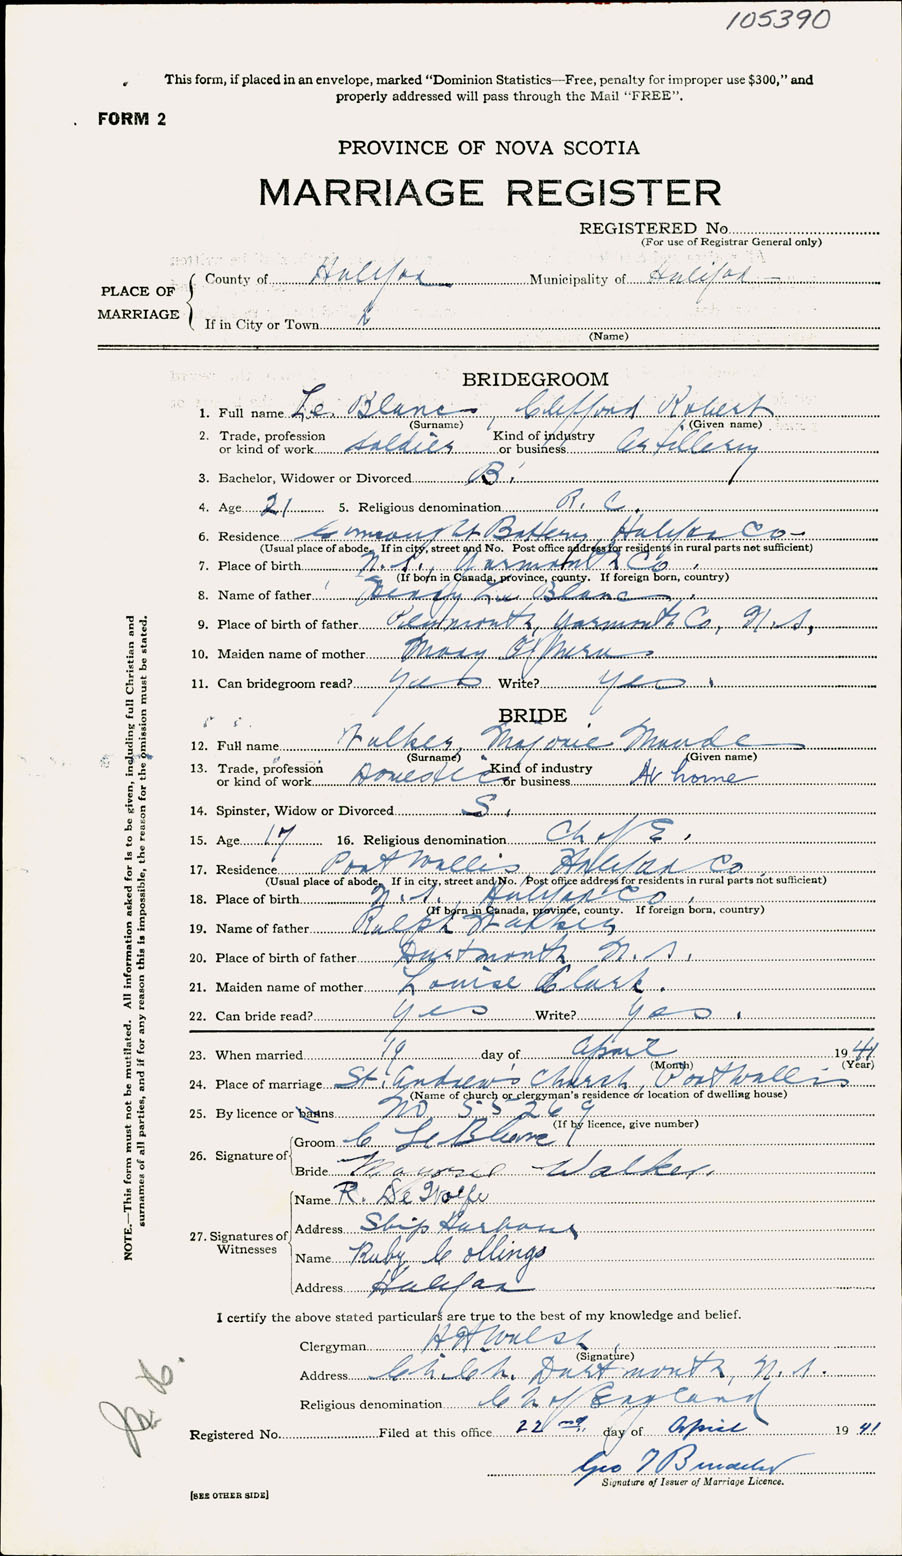 105390
This form, if placed in an envelope, marked "Dominion Statistics—Free, penalty for improper use $300," and
properly addressed will pass through the Mail "FREE".
FORM 2
PROVINCE OF NOVA SCOTIA
MARRIAGE REGISTER
REGISTERED No
(For use of Registrar General only)
PLACE OF MARRIAGE
County of Halifax Municipality of Halifax
If in City or Town
(Name)
BRIDEGROOM
1. Full name Le Blanc, Clifford Robert
(Surname) (Given name)
2. Trade, profession or kind of work Soldier Kind of industry or business Artillery
3. Bachelor, Widower or Divorced B.
4. Age 21 5. Religious denomination R. C.
6. Residence Connaught Battery Halifax Co
(Usual place of abode. If in city, street and No. Post office address for residents in rural parts not sufficient)
7. Place of birth N. S., Yarmouth Co.
(If born in Canada, province, county. If foreign born, country)
8. Name of father Le Blanc
9. Place of birth of father Plymouth, Yarmouth Co, N. S,
10. Maiden name of mother Mary
11. Can bridegroom read? yes Write? yes.
BRIDE
12. Full name Walker, Marjorie Maude
(Surname) (Given name)
13. Trade, profession or kind of work Domestic Kind of industry or business At home
14. Spinster, Widow or Divorced S.
15. Age 17 16. Religious denomination Ch of E.
17. Residence Port Wallis Halifax Co
(Usual place of abode. If in city, street and No. Post office address for residents in rural parts not sufficient)
18. Place of birth N. S., Halifax Co.
(If born in Canada, province, county. If foreign born, country)
19. Name of father Ralph Walker
20. Place of birth of father Dartmouth N. S.
21. Maiden name of mother Louise Clark.
22. Can bride read? yes Write? yes.
23. When married 19 day of April 1941
(Month) (Year)
24. Place of marriage St. Andrew's Church, Port Wallis
(Name of church or clergyman's residence or location of dwelling house)
25. By licence or banns No 55269
(If by licence, give number)
26. Signature of
Groom C LeBlanc
Bride Walker.
27. Signatures of Witnesses
Name R. DeWolfe
Address Ship Harbour
Name Ruby Collings
Address Halifax
I certify the above stated particulars are true to the best of my knowledge and belief.
Clergyman H H Walsh
(Signature)
Address Ch. Ch. Dartmouth, N. S.
Religious denomination Ch of England
Registered No. Filed at this office 22nd day of April 1941
Geo
Signature of Issuer of Marriage Licence.
[SEE OTHER SIDE]
NOTE.—This form must not be mutilated. All information asked for is to be given, including full Christian and
surnames of all parties, and if for any reason this is impossible, the reason for the omission must be stated.